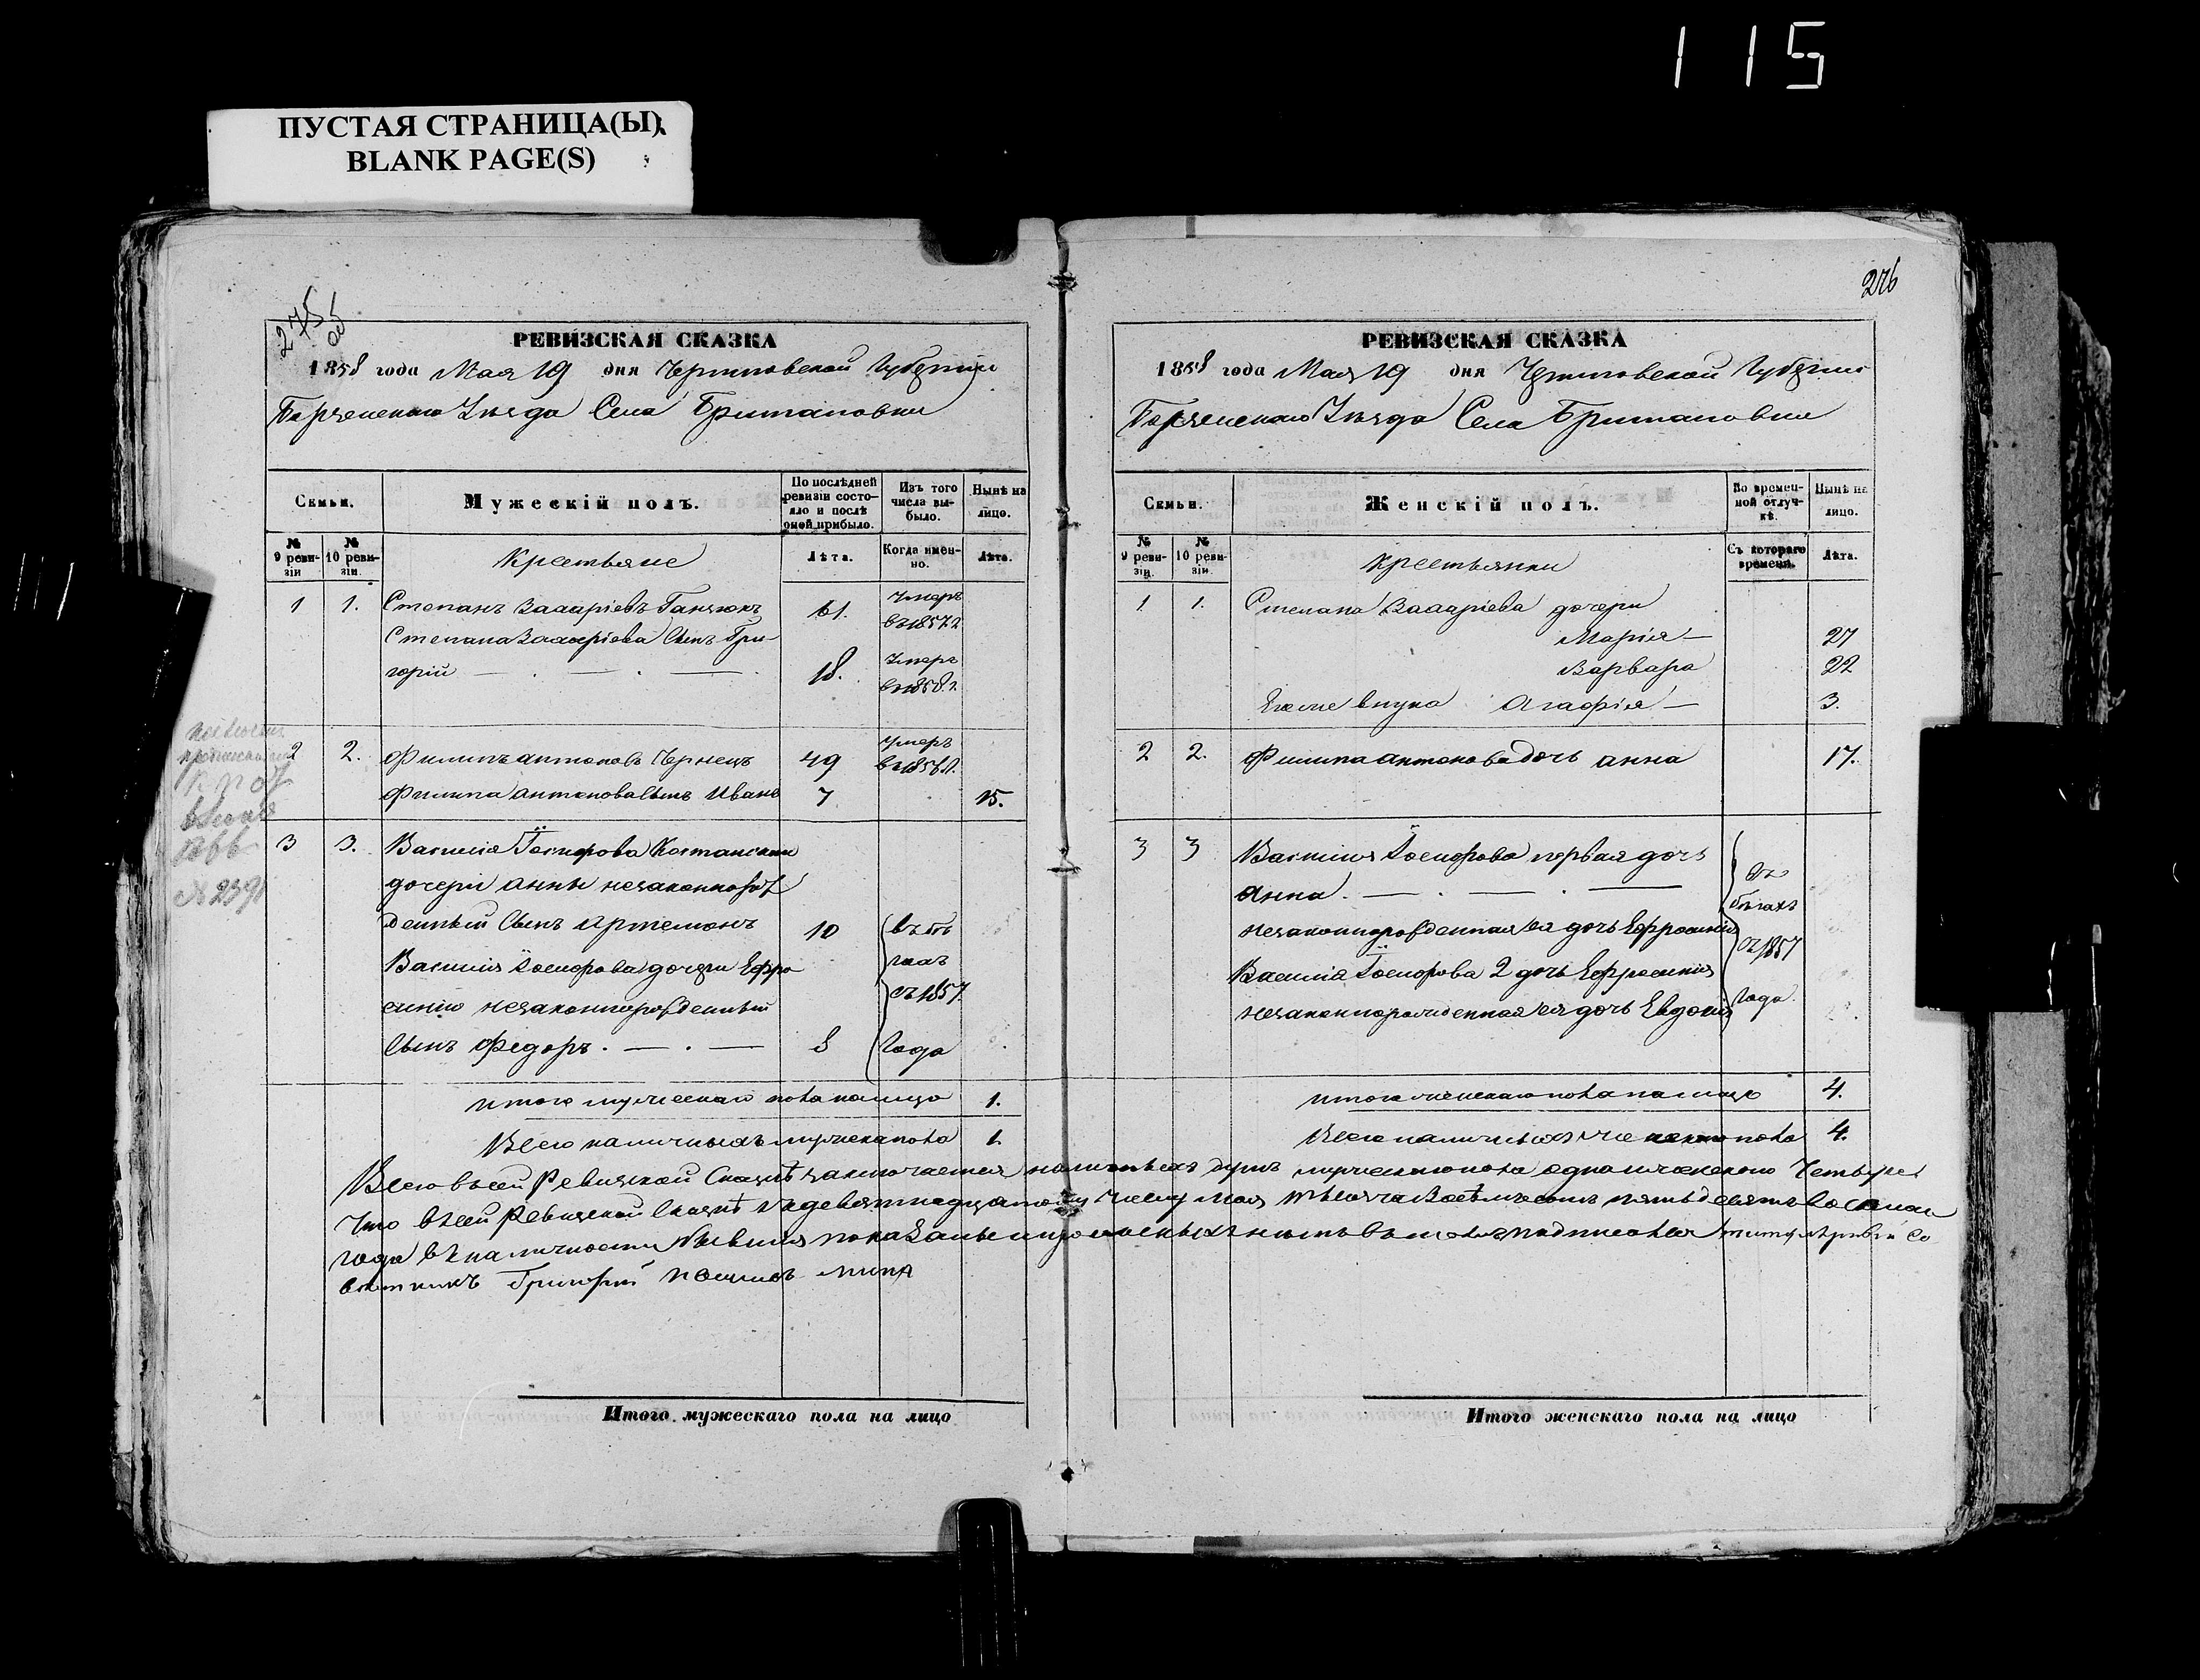 115
ПУСТАЯ СТРАНИЦА(Ы).
BLANK PAGE(S)
275
об
РЕВИЗСКАЯ СКАЗКА
1858 года Мая 19 дня Черниговской Губернии
Борзенскаго Уезда Села Британовки
Семьи.
Мужескій полъ.
По послѣдней ревизіи состояло и послѣ оной прибыло.
Изъ того числа выбыло.
Нынѣ на лицо.
№ 9 ревизіи
№ 10 ревизіи.
Крестьяне
Лѣта.
Когда именно.
Лѣта.
1 1. Степанъ Захаріевъ 61. Умеръ въ 1857 г.
Степана Захаріева Сынъ Гри-
горій 18. Умеръ въ 1858. г.
2 2. Филипъ Антоновъ Чернецъ 49 Умеръ
Филипа Антонова Сынъ Иванъ 7 15.
3 3. Василія
дочери Анны незаконнорож
денный Сынъ Артемонъ 10 въ бѣ
гахъ
Василія дочери Ефро
синіи незаконнорожденный съ 1857.
Сынъ Федоръ. 8 Года
итого мужескаго пола налицо 1.
Всего наличныхъ мужеска пола 1.
№ 2391
276
РЕВИЗСКАЯ СКАЗКА
1858 года Мая 19 дня Черниговской Губернии
Борзенскаго Уезда Села Британовки
Семьи.
Женскій полъ.
Во временной отлучкѣ.
Нынѣ на лицо.
№ 9 ревизіи.
№ 10 ревизіи.
Крестьянки
Съ котораго времени.
Лѣта.
1. 1. Степана Захаріева дочери
Марія 27
Варвара 22
Его же внука Агафія 3.
2 2. Филипа Антонова дочь Анна 17.
3 3 Василія первая дочь въ
Анна. бѣгахъ
незаконнорожденная ея дочь Ефросинія съ 1857
Василія 2 дочь Ефросинія
незаконнорожденная ея дочь Евдокія Года.
итого женскаго пола на лицо 4.
Всего наличныхъ женскаго пола 4.
Всего в сей Ревизской Сказкѣ заключается наличныхъ душъ мужескаго пола одна и женскаго Четыре
Что в сей Ревизской Сказкѣ къ девятнадцатому числу Мая тысяча восемьсотъ пятьдесятъ восьмаго
года въ наличности бывшия показаны и прописныхъ нѣтъ в томъ подписался титулярный Со
вѣтникъ Григорій
Итого мужескаго пола на лицо
Итого женскаго пола на лицо